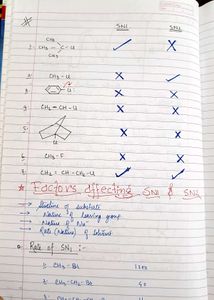 SN1 SN2
CH3
1. CH3 - C - U
CH3
2. CH3 - U
3. U
4. CH2 = CH - U
5.
6. CH3 - F
7. CH2 = CH - CH2 - U
Factors affecting SN1 & SN2
→ Structure of substrate
→ Nature of leaving group
→ Nature of Nu
→ Role (Nature) of Solvent
Rate of SN2 :-
1. CH3 - Br 1200
2. CH3 - CH2 - Br 40